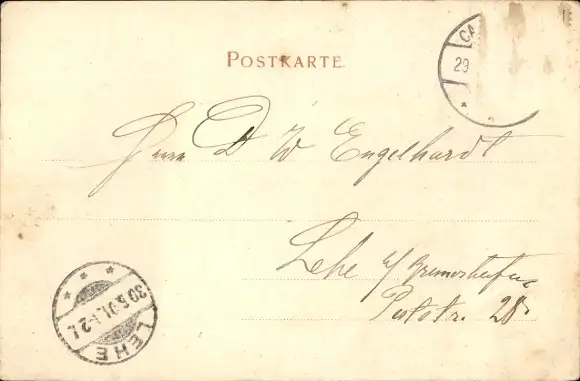 POSTKARTE.
CA
29
Herrn D W Engelhardt
Lehe b/ Bremerhafen
28
30.5.01.1-2N.
LEHE